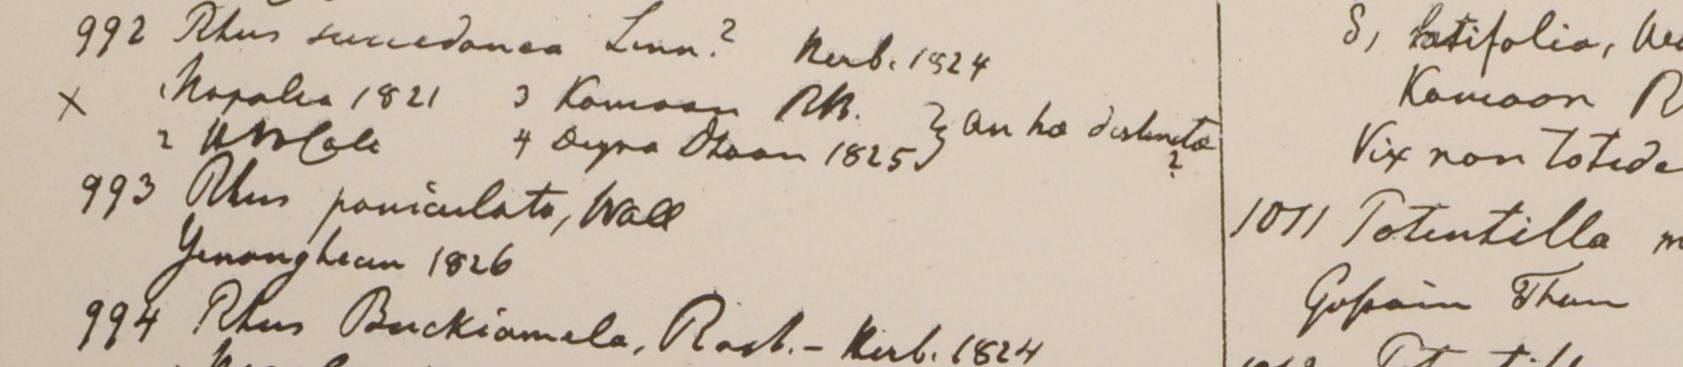 992 Rhus succedanea Linn.? Herb. 1824
x 1 Napalia 1821 3 Kamaon RB.
2 4 Deyra Dhoon 1825 } an hae distinctae ?
993 Rhus paniculata, Wall
Yenangheun 1826
994 Rhus Buckiamela, Roxb. - Herb. 1824
δ, latifolia,
Kamaon R
Vix non
1011 Potentilla
Gossain Than